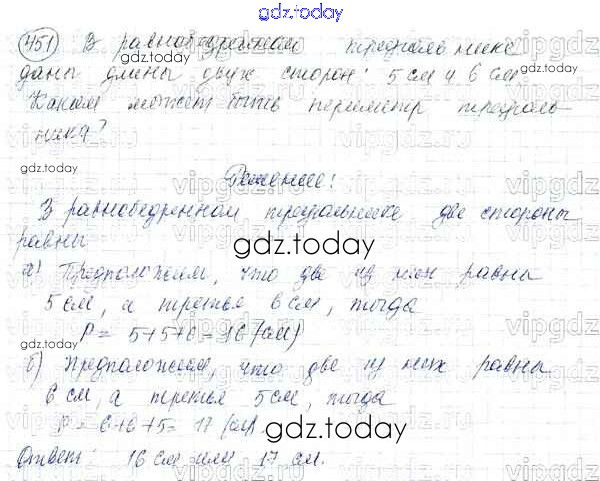 gdz.today
451 В равнобедренном треугольнике
даны длины двух сторон: 5 см и 6 см
Каким может быть периметр треуголь
ника?
gdz.today
gdz.today
Решение:
В равнобедренном треугольнике две стороны
равны
gdz.today
а) Предположим, что две из них равны
5 см, а третья 6 см, тогда
P = 5+5+6=16 (см)
gdz.today
б) Предположим, что две из них равны
6 см, а третья 5 см, тогда
P = 6+6+5= 17 (см).
gdz.today
Ответ: 16 см или 17 см.
gdz.today